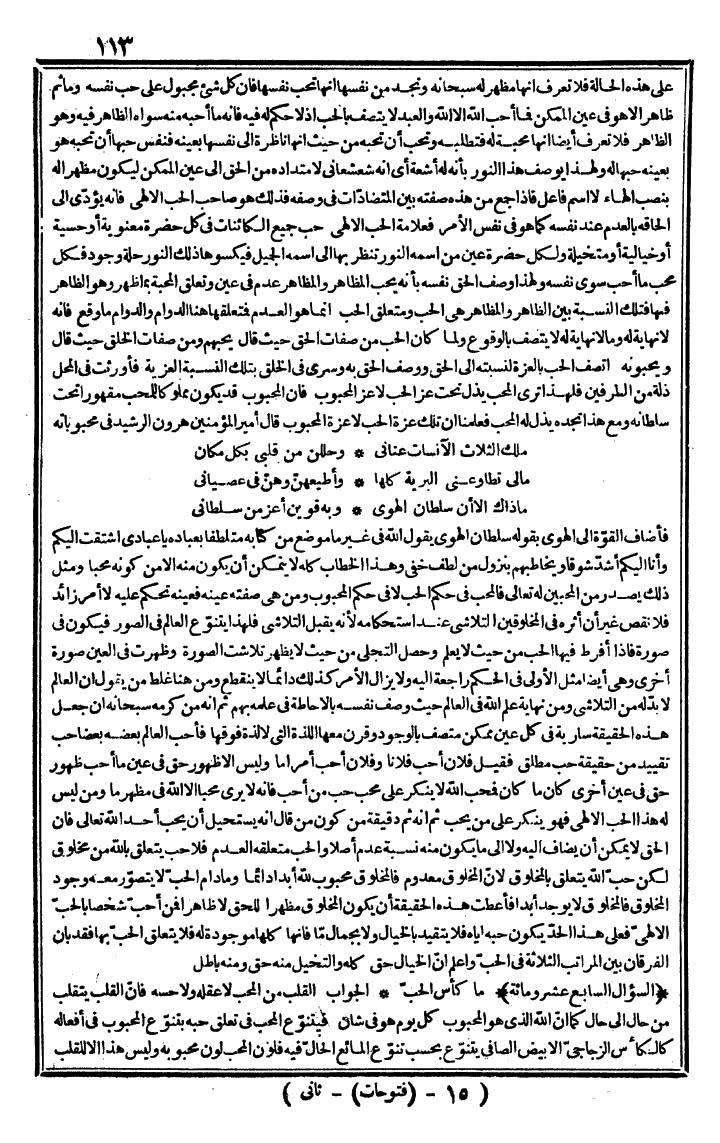 ١١٣
على هذه الحالة فلا تعرف انها مظهر له سبحانه وتجد من نفسها انها تحب نفسها فان كل شئ مجبول على حب نفسه وما ثم
ظاهر الا هو فى عين الممكن فما أحب الله الا الله والعبد لا يتصف بالحب اذ لا حكم له فيه فانه ما أحبه منه سواه الظاهر فيه وهو
الظاهر فلا تعرف أيضا انها محبة له فتطلبه وتحب أن تحبه من حيث انها ناظرة الى نفسها بعينه فنفس حبها أن تحبه هو
بعينه حبها له ولهذا يوصف هذا النور بأنه له أشعة أى انه شعشعانى لامتداده من الحق الى عين الممكن ليكون مظهرا له
بنصب الهاء لا اسم فاعل فاذا جمع من هذه صفته بين المتضادّات فى وصفه فذلك هو صاحب الحب الالهى فانه يؤدّى الى
الحاقه بالعدم عند نفسه كما هو فى نفس الأمر فعلامة الحب الالهى حب جميع الكائنات فى كل حضرة معنوية أو حسية
أو خيالية أو متخيلة ولكل حضرة عين من اسمه النور تنظر بها الى اسمه الجميل فيكسوها ذلك النور حلة وجود فكل
محب ما أحب سوى نفسه ولهذا وصف الحق نفسه بأنه يحب المظاهر والمظاهر عدم فى عين وتعلق المحبة بما ظهر وهو الظاهر
فيها فتلك النسبة بين الظاهر والمظاهر هى الحب ومتعلق الحب انما هو العدم فمتعلقها هنا الدوام والدوام ما وقع فانه
لا نهاية له وما لا نهاية له لا يتصف بالوقوع ولما كان الحب من صفات الحق حيث قال يحبهم ومن صفات الخلق حيث قال
ويحبونه اتصف الحب بالعزة لنسبته الى الحق ووصف الحق به وسرى فى الخلق بتلك النسبة العزية فأورثت فى المحل
ذلة من الطرفين فلهذا ترى المحب يذل تحت عز الحب لا عز المحبوب فان المحبوب قد يكون مملوكا للمحب مقهورا تحت
سلطانه ومع هذا تجده يذل له المحب فعلمنا ان تلك عزة الحب لا عزة المحبوب قال أمير المؤمنين هرون الرشيد فى محبوباته
ملك الثلاث الآنسات عنانى * وحللن من قلبى بكل مكان
مالى تطاوعنى البرية كلها * وأطيعهنّ وهنّ فى عصيانى
ماذاك الا أن سلطان الهوى * وبه قوين أعز من سلطانى
فأضاف القوّة الى الهوى بقوله سلطان الهوى يقول الله فى غير ما موضع من كتابه متلطفا بعباده يا عبادى اشتقت اليكم
وأنا اليكم أشدّ شوقا ويخاطبهم بنزول من لطف خفى وهذا الخطاب كله لا يتمكن أن يكون منه الا من كونه محبا ومثل
ذلك يصدر من المحبين له تعالى فالمحب فى حكم الحب لا فى حكم المحبوب ومن هى صفته عينه فعينه تحكم عليه لا أمر زائد
فلا نقص غير أن أثره فى المخلوقين التلاشى عند استحكامه لأنه يقبل التلاشى فلهذا يتنوّع العالم فى الصور فيكون فى
صورة فاذا أفرط فيها الحب من حيث لا يعلم وحصل التجلى من حيث لا يظهر تلاشت الصورة وظهرت فى العين صورة
أخرى وهى أيضا مثل الأولى فى الحكم راجعة اليه ولا يزال الأمر كذلك دائما لا ينقطع ومن هنا غلط من يقول ان العالم
لا بدّ له من التلاشى ومن نهاية علم الله فى العالم حيث وصف نفسه بالاحاطة فى علمه بهم ثم انه من كرمه سبحانه ان جعل
هذه الحقيقة سارية فى كل عين ممكن متصف بالوجود وقرن معها اللذة التى لا لذة فوقها فأحب العالم بعضه بعضا حب
تقييد من حقيقة حب مطلق فقيل فلان أحب فلانا وفلان أحب أمر اما وليس الا ظهور حق فى عين ما أحب ظهور
حق فى عين أخرى كان ما كان فمحب الله لا ينكر على محب حب من أحب فانه لا يرى محبا الا الله فى مظهر ما ومن ليس
له هذا الحب الالهى فهو ينكر على من يحب ثم انه ثم دقيقة من كون من قال انه يستحيل أن يحب أحد الله تعالى فان
الحق لا يمكن أن يضاف اليه ولا الى ما يكون منه نسبة عدم أصلا والحب متعلقه العدم فلا حب يتعلق بالله من مخلوق
لكن حبّ الله يتعلق بالمخلوق لانّ المخلوق معدوم فالمخلوق محبوب لله أبدا دائما ومادام الحبّ لا يتصوّر معه وجود
المخلوق فالمخلوق لا يوجد أبدا فأعطت هذه الحقيقة أن يكون المخلوق مظهرا للحق لا ظاهرا فمن أحبّ شخصا بالحبّ
الالهىّ فعلى هذا الحدّ يكون حبه اياه فلا يتقيد بالخيال ولا بجمال مّا فانها كلها موجودة له فلا يتعلق الحبّ بها فقد بان
الفرقان بين المراتب الثلاثة فى الحبّ واعلم انّ الخيال حق كله والتخيل منه حق ومنه باطل
﴿السؤال السابع عشر ومائة﴾ ما كأس الحبّ * الجواب القلب من المحب لا عقله ولا حسه فانّ القلب يتقلب
من حال الى حال كما انّ الله الذى هو المحبوب كل يوم هو فى شان فيتنوّع المحب فى تعلق حبه بتنوّع المحبوب فى أفعاله
كالكأس الزجاجىّ الابيض الصافى يتنوّع بحسب تنوّع المائع الحالّ فيه فلون المحب لون محبوبه وليس هذا الا للقلب
( ١٥ - (فتوحات) - ثانى )